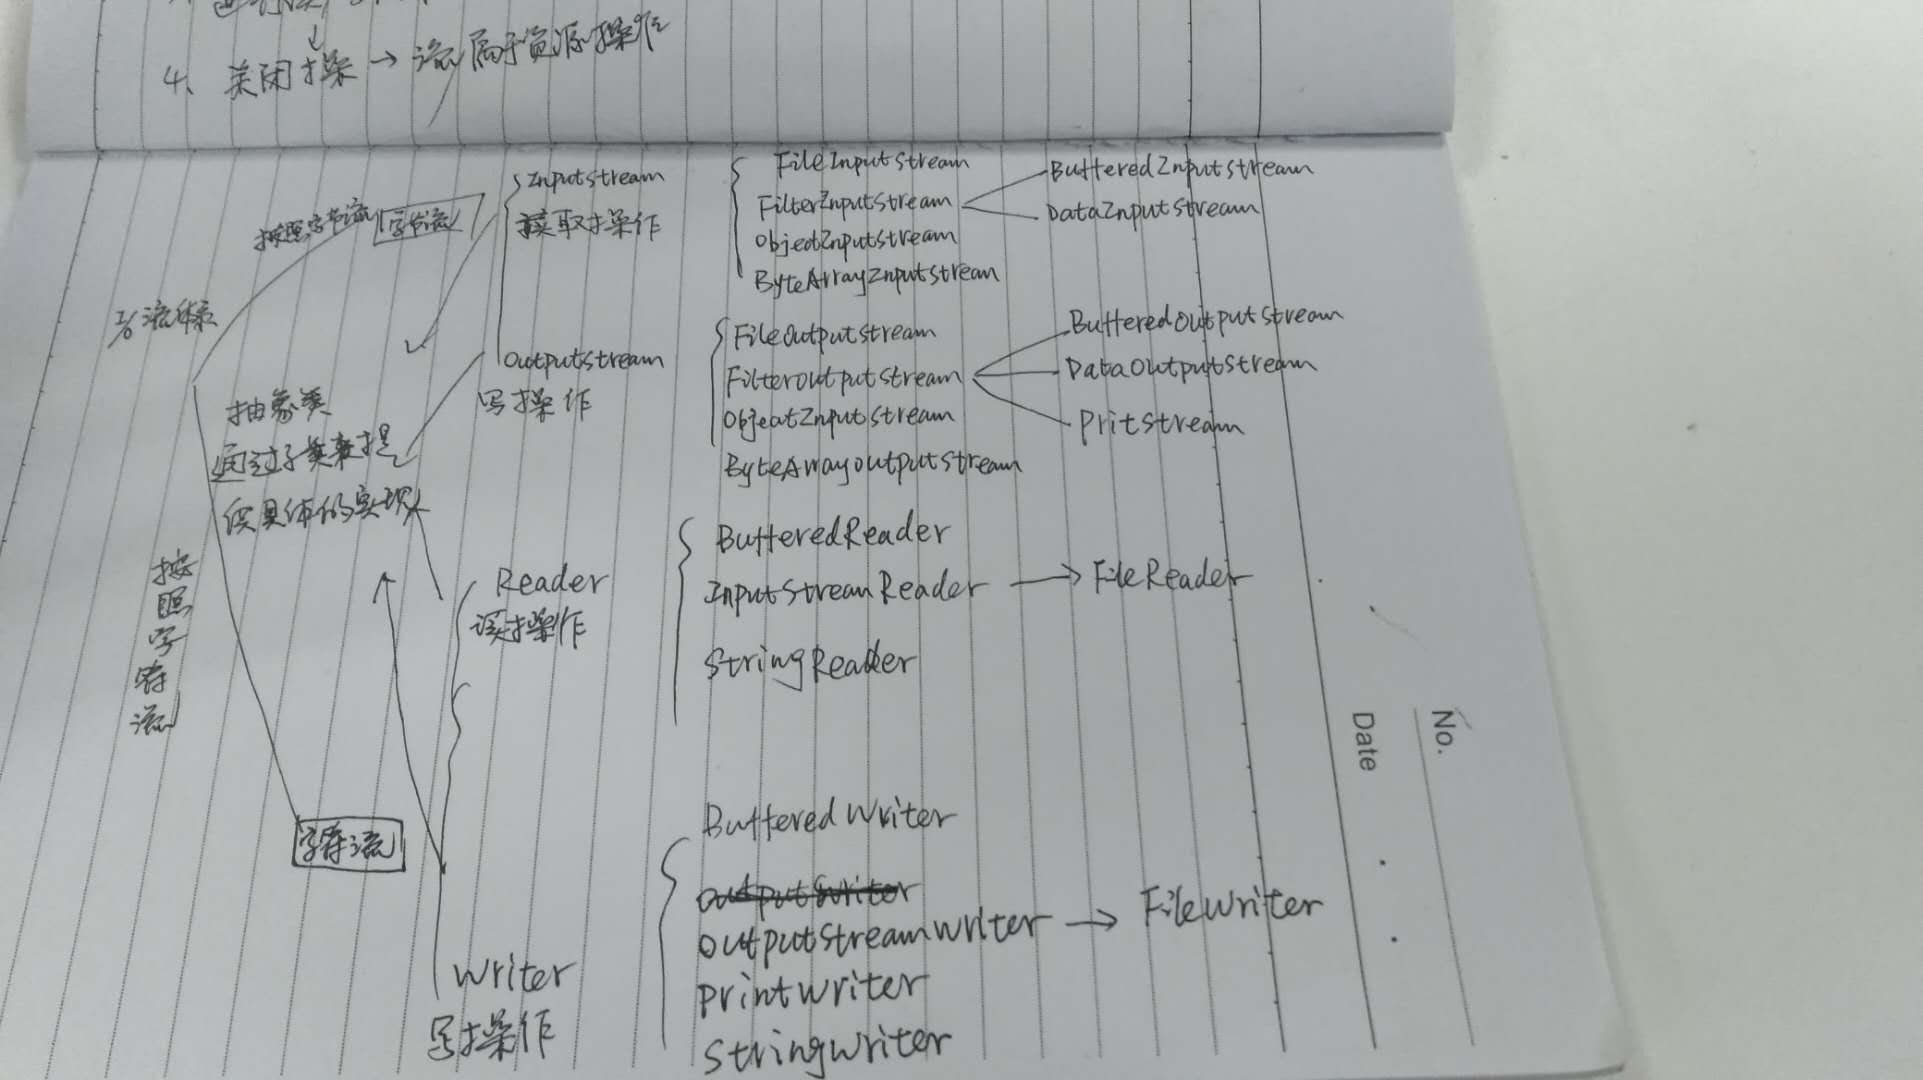 4、关闭操作→流属于资源操作
I/O流体系
按照字节流
字节流
InputStream
读取操作
FileInputStream
FilterInputStream
BufferedInputStream
DataInputStream
ObjectInputStream
ByteArrayInputStream
OutputStream
写操作
FileOutputStream
FilterOutputStream
BufferedOutputStream
DataOutputStream
PritStream
ObjectInputStream
ByteArrayOutputStream
抽象类
通过子类来提
供具体的实现
按照字符流
字符流
Reader
读操作
BufferedReader
InputStreamReader → FileReader
StringReader
Writer
写操作
BufferedWriter
OutputStreamWriter → FileWriter
PrintWriter
StringWriter
No.
Date